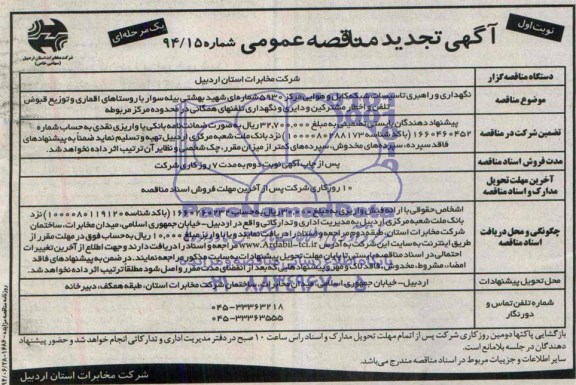 نوبت اول
آگهی تجدید مناقصه عمومی شماره ۹۴/۱۵
یک مرحله‌ای
شرکت مخابرات استان اردبیل
(سهامی خاص)
دستگاه مناقصه گزار
شرکت مخابرات استان اردبیل
موضوع مناقصه
نگهداری و راهبری تاسیسات شبکه کابل و هوایی مرکز ۵۹۳۰ شماره‌ای شهید بهشتی بیله سوار با روستاهای اقماری و توزیع قبوض
تلفن و اخطار مشترکین و دایری و نگهداری تلفنهای همگانی در محدوده مرکز مربوطه
تضمین شرکت در مناقصه
پیشنهاد دهندگان بایستی تضمین به مبلغ ۳۲,۷۰۰,۰۰۰ ریال به صورت ضمانت نامه بانکی یا واریزی نقدی به حساب شماره
۱۶۶۰۴۶۰۴۵۲ (با کد شناسه ۱۰۰۰۰۸۰۲۸۸۱۷۳) نزد بانک ملت شعبه مرکزی اردبیل تهیه و تسلیم نماید ضمنا به پیشنهادهای
فاقد سپرده، سپرده‌های مخدوش، سپرده‌های کمتر از میزان مقرر، چک شخصی و نظایر آن ترتیب اثر داده نخواهد شد.
مدت فروش اسناد مناقصه
پس از چاپ آگهی نوبت دوم به مدت ۷ روز کاری شرکت
آخرین مهلت تحویل
مدارک و اسناد مناقصه
۱۰ روز کاری شرکت پس از آخرین مهلت فروش اسناد مناقصه
چگونگی و محل دریافت
اسناد مناقصه
اشخاص حقوقی با ارائه فیش واریزی به مبلغ ریال به حساب (با کد شناسه ۱۰۰۰۰۸۰۱۱۹۱۲۰) نزد
بانک ملت شعبه مرکزی اردبیل به مدیریت اداری و تدارکاتی واقع در اردبیل - خیابان جمهوری اسلامی، میدان مخابرات، ساختمان
شرکت مخابرات استان، طبقه دوم مراجعه و اسناد را دریافت نمایند و یا با واریز مبلغ ۱۰,۰۰۰ ریال به حساب فوق در مهلت مقرر از
طریق اینترنت به سایت این شرکت به آدرس www.Ardabil-tci.ir مراجعه و اسناد را دریافت دارند و جهت اطلاع از آخرین تغییرات
احتمالی در اسناد مناقصه بایستی تا پایان مهلت تحویل پیشنهادات به سایت مذکور مراجعه نمایند. در ضمن به پیشنهادهای فاقد
امضاء، مشروط، مخدوش، فاقد لاک و مهر و پیشنهادهایی که بعد از انقضای مدت مقرر واصل شود مطلقا ترتیب اثر داده نخواهد شد.
محل تحویل پیشنهادات
اردبیل - خیابان جمهوری اسلامی، میدان مخابرات، ساختمان شرکت مخابرات استان، طبقه همکف، دبیرخانه
شماره تلفن تماس و
دورنگار
۰۴۵-۳۳۳۶۳۲۱۸
۰۴۵-۳۳۳۶۳۵۵۵
بازگشایی پاکتها دومین روز کاری شرکت پس از اتمام مهلت تحویل مدارک و اسناد راس ساعت ۱۰ صبح در دفتر مدیریت اداری و تدارکاتی انجام خواهد شد و حضور پیشنهاد
دهندگان در جلسه بلامانع است.
سایر اطلاعات و جزییات مربوط در اسناد مناقصه مندرج می‌باشد.
شرکت مخابرات استان اردبیل